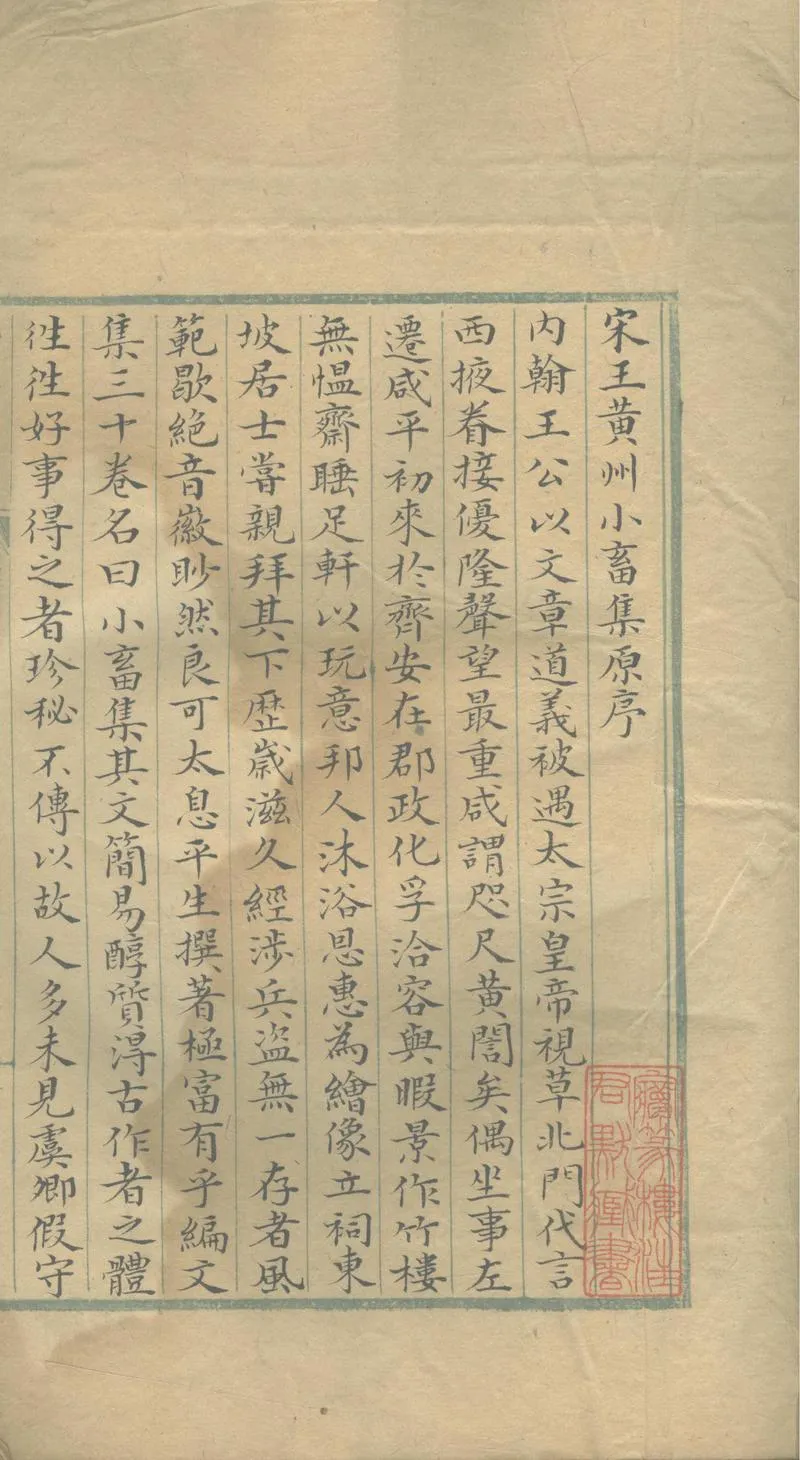 宋王黄州小畜集原序
内翰王公以文章道義被遇太宗皇帝視草北門代言
西掖眷接優隆聲望最重咸謂咫尺黄閤矣偶坐事左
遷咸平初來於齊安在郡政化孚洽容與暇景作竹樓
無愠齋睡足軒以玩意邦人沐浴恩惠為繪像立祠東
坡居士嘗親拜其下歷歲滋久經涉兵盜無一存者風
範歇絶音徽眇然良可太息平生撰著極富有手編文
集三十卷名曰小畜集其文簡易醇質得古作者之體
徃徃好事得之者珍秘不傳以故人多未見虞卿假守